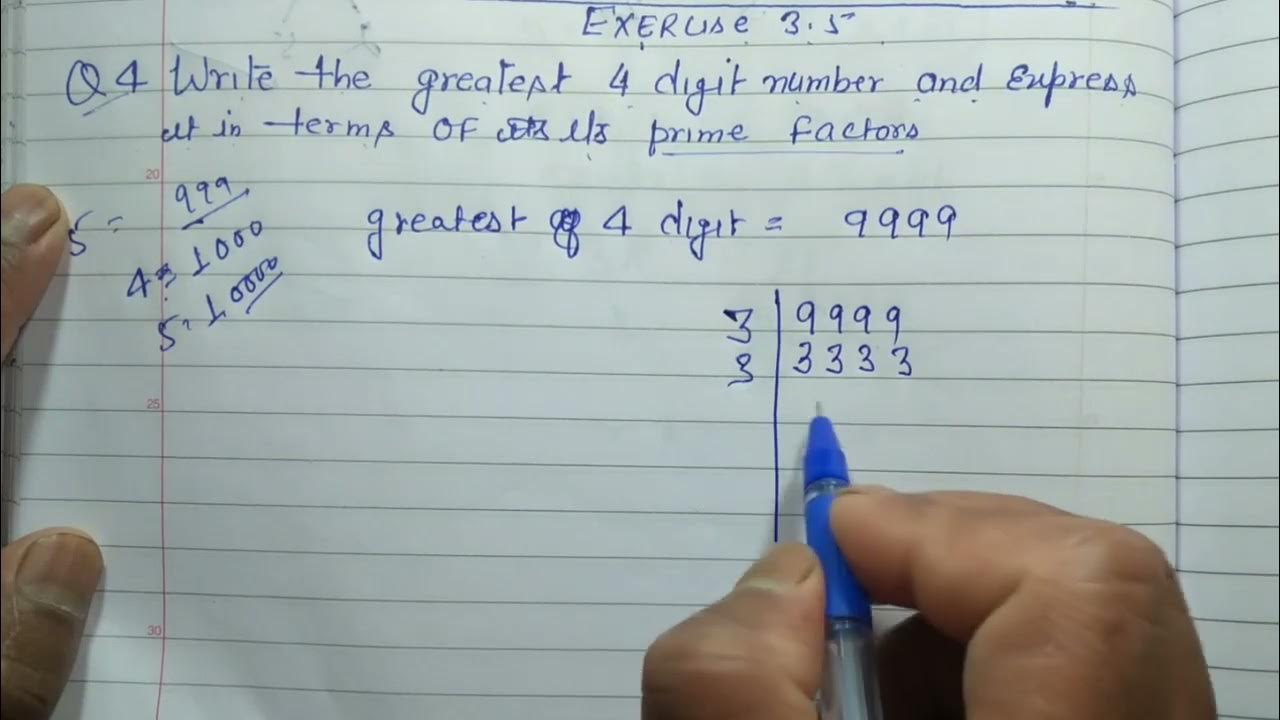 EXERCISE 3.5
Q4 Write the greatest 4 digit number and Express
it in terms OF its prime Factors
20
999
5 =
4= 1000
5= 10000
greatest of 4 digit = 9999
3 | 9999
3 | 3333
25
30